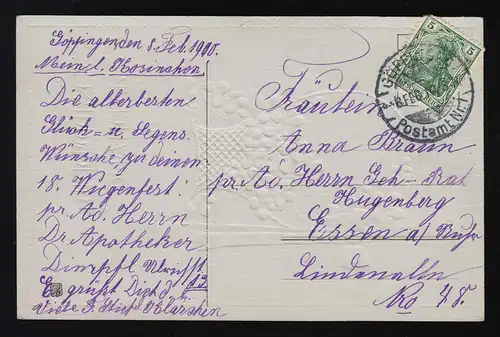 Göppingen den 8. Feb. 1910.
Mein l. Rosinchen
Die allerbesten
Glück- u. Segens
Wünsche zu deinem
18. Wiegenfest
pr. Ad. Herrn
Dr Apotheker
Dimpfl
Es grüßt Dich d.
Liebe
Fräulein
Anna Braun
pr. Ad. Herrn Geh-Rat
Hugenberg
Essen a/ Ruhr
Lindenalle
No 48.
5
8. FEB
Postamt Nr. 1